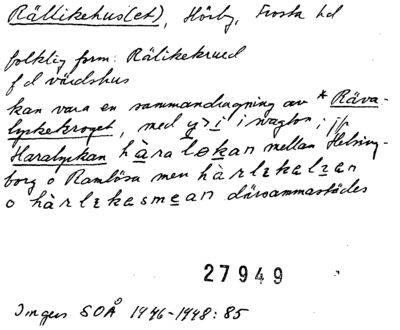 Rällikehus(et), Hörby, Frosta hd
folklig form: Rälikekrued
f d värdshus
kan vara en sammandragning av *Räva-
lyckekroget, med y>i i svagton; jfr
Haralyckan hàraløkan mellan Helsing-
borg o Ramlösa men hàrlɪkelɪən
o hàrlɪkasmean därsammastädes
27949
Ingers SOÅ 1946-1948:85